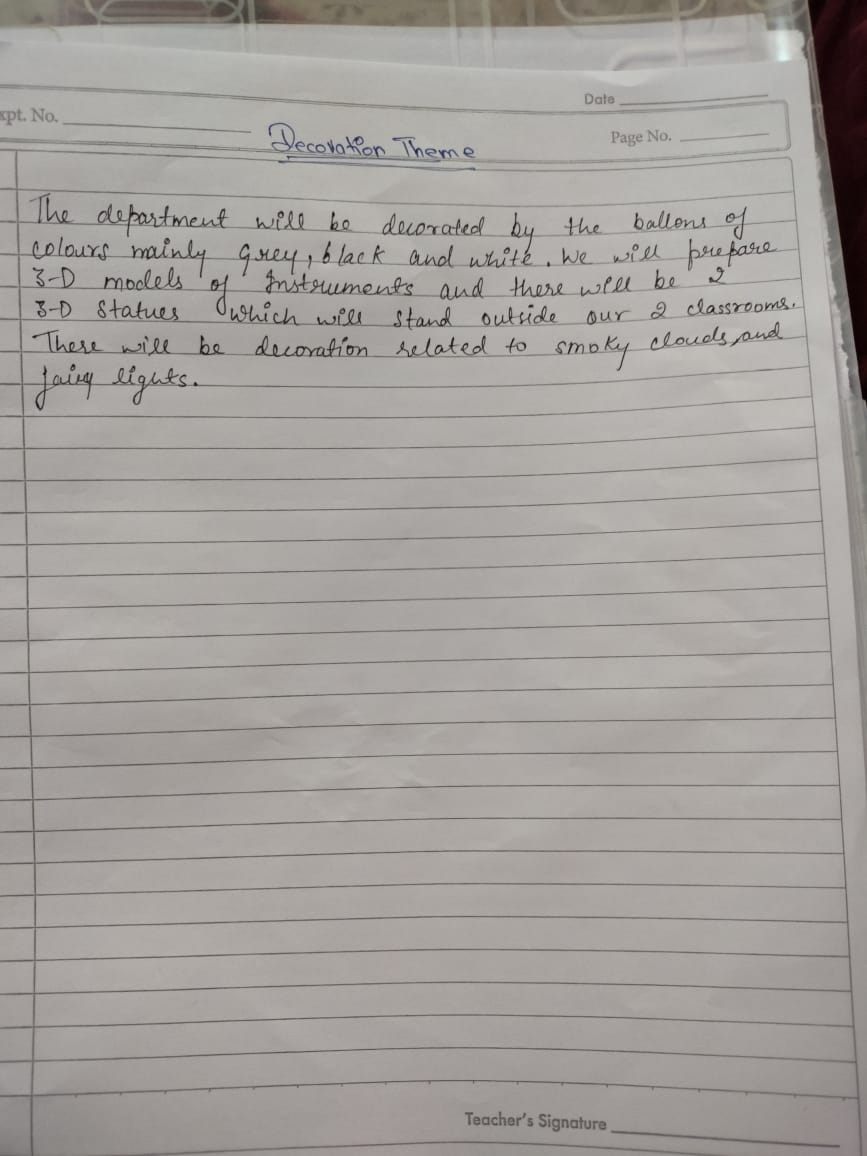 Date
xpt. No.
Page No.
Decoration Theme
The department will be decorated by the ballons of
colours mainly grey, black and white. We will prepare
3-D models of Instruments and there will be 2
3-D Statues which will stand outside our 2 classrooms.
There will be decoration related to smoky clouds, and
fairy lights.
Teacher's Signature